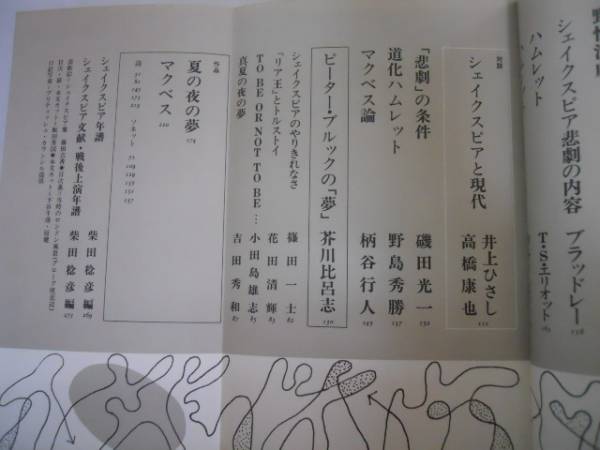 シェイクスピア悲劇の内容 ブラッドレー
ハムレット T・S・エリオット
対談
シェイクスピアと現代 井上ひさし 高橋康也
「悲劇」の条件 磯田光一 132
道化ハムレット 野島秀勝 137
マクベス論 柄谷行人 145
ピーター・ブルックの「夢」 芥川比呂志 130
シェイクスピアのやりきれなさ 篠田一士 82
「リア王」とトルストイ 花田清輝 83
TO BE OR NOT TO BE… 小田島雄志 85
真夏の夜の夢 吉田秀和 87
作品
夏の夜の夢 174
マクベス 220
詩 31 81 145 173 219
ソネット 71 109 129 139 151 157
シェイクスピア年譜 柴田稔彦編 269
シェイクスピア文献・戦後上演年譜 柴田稔彦編 271